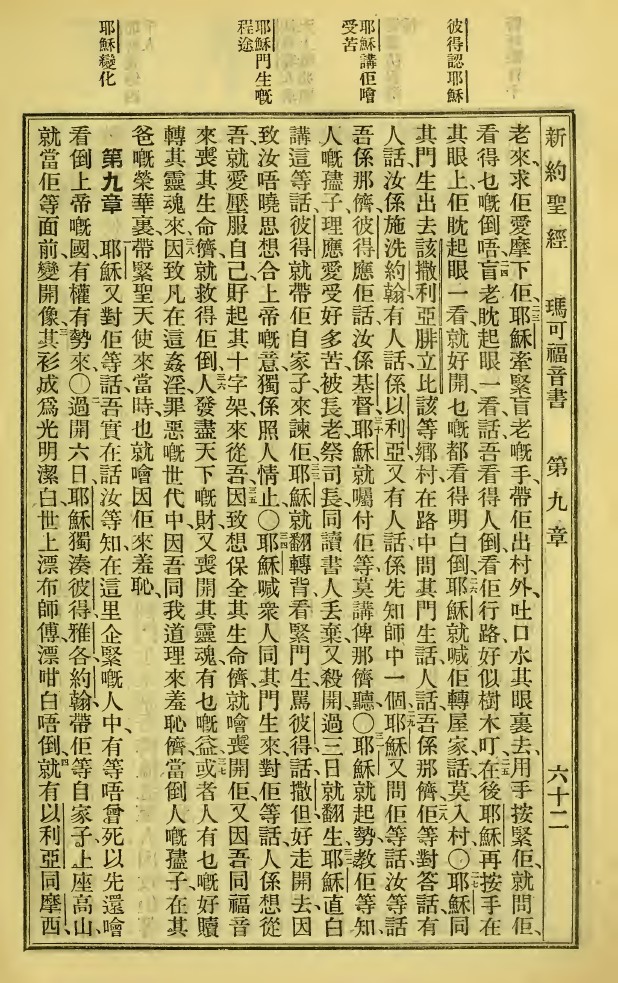 彼得認耶穌
耶穌講佢噲
受苦
耶穌門生嘅
程途
耶穌變化
新約聖經 瑪可福音書 第九章 六十二
老來、求佢愛摩下佢、二三耶穌牽緊盲老嘅手、帶佢出村外、吐口水其眼裏去、用手按緊佢、就問佢、
看得乜嘅倒唔、二四盲老眈起眼一看、話、吾看得人倒、看佢行路好似樹木叮、二五在後耶穌再按手在
其眼上、佢眈起眼一看、就好開、乜嘅都看得明白倒、二六耶穌就喊佢轉屋家、話、莫入村、〇二七耶穌同
其門生出去、該撒利亞腓立比該等鄉村、在路中問其門生話、人話吾係那儕、二八佢等對答話、有
人話汝係施洗約翰、有人話係以利亞、又有人話、係先知師中一個、二九耶穌又問佢等話、汝等話
吾係那儕、彼得應佢話、汝係基督、三十耶穌就囑付佢等、莫講俾那儕聽、〇三一耶穌就起勢教佢等知、
人嘅孻子、理應愛受好多苦、被長老祭司長同讀書人丟棄、又殺開、過三日就翻生、三二耶穌直白
講這等話、彼得就帶佢自家子來諫佢、三三耶穌就翻轉背、看緊門生、罵彼得話、撒但好走開去、因
致汝唔曉思想合上帝嘅意、獨係照人情止、〇三四耶穌喊衆人同其門生來、對佢等話、人係想從
吾、就愛壓服自己、𧵳起其十字架來從吾、三五因致想保全其生命儕、就噲喪開佢、又因吾同福音
來喪其生命儕、就救得佢倒、三六人發盡天下嘅財、又喪開其靈魂、有乜嘅益、三七或者人有乜嘅好贖
轉其靈魂來、三八因致凡在這姦淫罪惡嘅世代中、因吾同我道理來羞恥儕、當倒人嘅孻子、在其
爸嘅榮華裏、帶緊聖天使來當時、也就噲因佢來羞恥、
第九章 一耶穌又對佢等話、吾實在話汝等知、在這里企緊嘅人中、有等唔曾死以先、還噲
看倒上帝嘅國、有權有勢來、〇二過開六日、耶穌獨湊彼得雅各約翰、帶佢等自家子、上座高山、
就當佢等面前變開像、三其衫成爲光明潔白、世上漂布師傅、漂咁白唔倒、四就有以利亞同摩西、